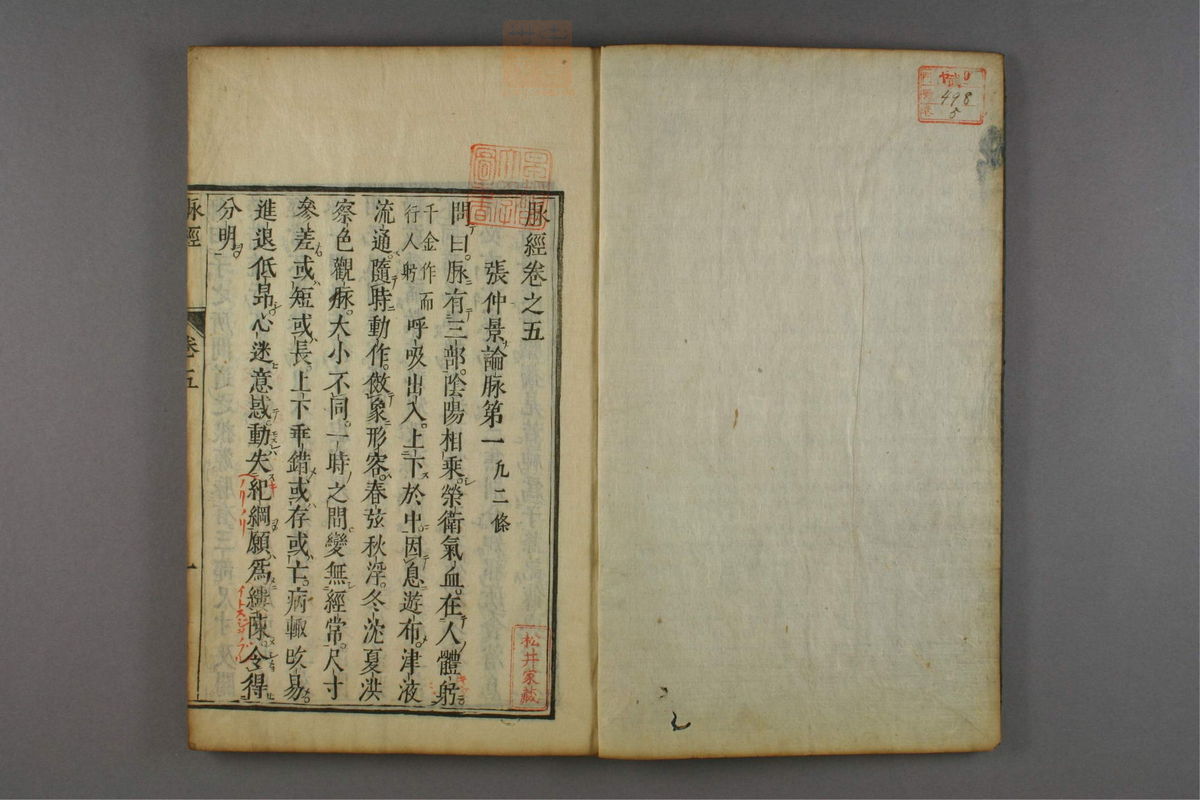 498
5
松井家藏
脉經卷之五
張仲景論脉第一 九二條
問曰脉有三部陰陽相乘榮衛氣血在人體躬
千金作而行人躬呼吸出入上下於中因息遊布津液
流通隨時動作傚象形容春弦秋浮冬沈夏洪
察色觀脉大小不同一時之間變無經常尺寸
參差或短或長上下乖錯或存或亡病輒改易
進退低昻心迷意惑動失紀綱願爲縷陳令得
分明
脉經
卷五
一